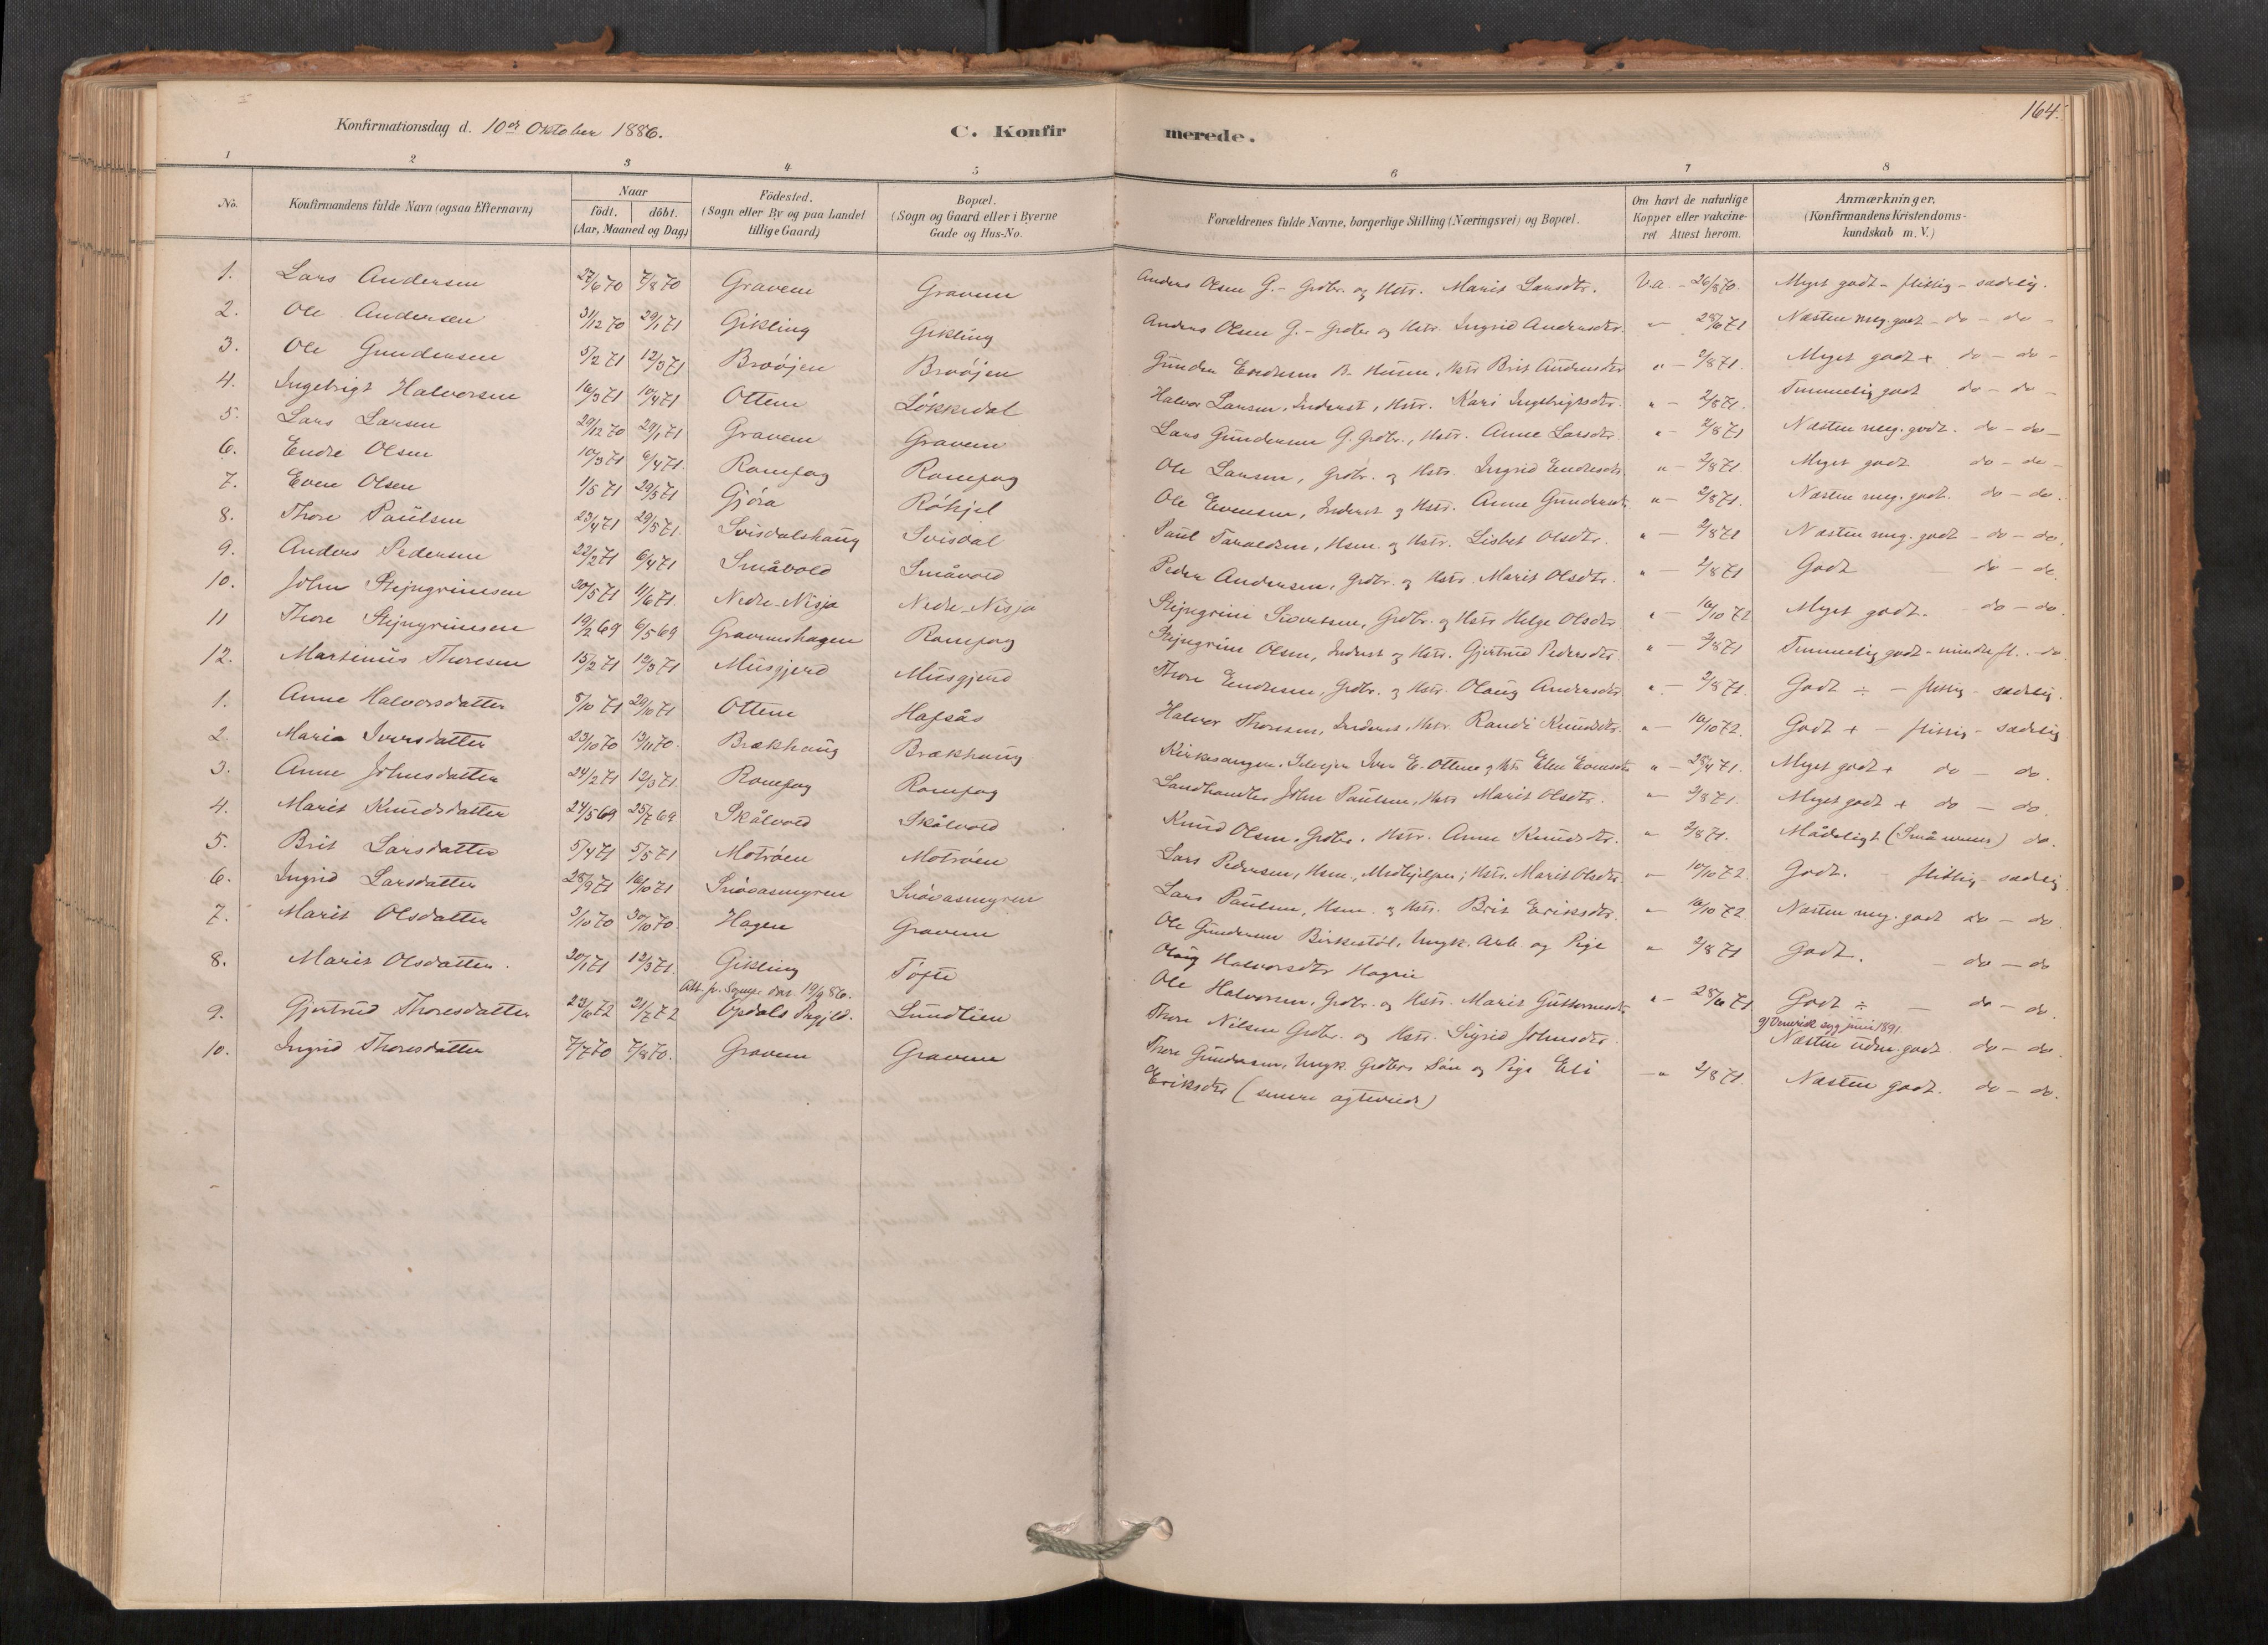 164.
Konfirmationsdag d. 10de Oktober 1886. C. Konfir merede.
1 2 3 4 5 6 7 8
No. Konfirmandens fulde Navn (ogsaa Efternavn) Naar födt. döbt. (Aar, Maaned og Dag) Födested. (Sogn eller By og paa Landet tillige Gaard) Bopæl. (Sogn og Gaard eller i Byerne Gade og Hus-No. Forældrenes fulde Navne, borgerlige Stilling (Næringsvei) og Bopæl. Om havt de naturlige Kopper eller vakcineret. Attest herom. Anmærkninger. (Konfirmandens Kristendomskundskab m. V.)
1. Lars Andersen 27/6 70 7/8 70 Gravem Gravem Anders Olsen G. - Grdbr. og Hstr. Marit Larsdtr. V.a. - 26/8 70. Meget godt - flittig - sædelig.
2. Ole Andersen 31/12 70 29/1 71 Gikling Gikling Anders Olsen G. - Grdbr og Hstr. Ingrid Andersdtr. " - 28/6 71 Næsten meg. godt - do - do -
3. Ole Gundersen 5/2 71 12/3 71 Brøöjen Brøöjen Gunder Endresen B. Husm., Hstr Brit Andersdtr " - 2/8 71. Meget godt + do - do -
4. Ingebrigt Halvorsen 16/3 71 10/4 71 Ottem Løkkedal Halvor Larsen, Inderst, Hstr. Kari Ingebrigtsdtr. " - 2/8 71. Temmelig godt do - do -
5. Lars Larsen 29/12 70 29/1 71 Gravem Gravem Lars Gundersen G. Grdbr., Hstr. Anne Larsdtr. " - 2/8 71 Næsten meg. godt. do - do -
6. Endre Olsen 10/3 71 6/4 71. Romfog Romfog Ole Larsen, Grdbr. og Hstr. Ingrid Endresdtr. " - 2/8 71. Meget godt do - do -
7. Even Olsen 1/5 71 29/5 71 Gjöra Röhjel Ole Evensen, Inderst og Hstr. Anne Gundersdtr. " - 2/8 71. Næsten meg. godt. do - do.
8. Thore Paulsen 23/4 71 29/5 71. Svisdalshaug Svisdal Paul Taraldsen, Hsm. og Hstr. Lisbet Olsdtr. " - 2/8 71 Næsten meg. godt - do - do.
9. Anders Pedersen 22/2 71 6/4 71 Småvold Småvold Peder Andersen, Grdbr. og Hstr. Marit Olsdtr. " - 2/8 71 Godt - do - do.
10. John Stejngrimsen 20/5 71 11/6 71. Nedre-Nisja Nedre-Nisja Stejngrim Sivertsen, Grdbr. og Hstr Helge Olsdtr. " - 10/10 72 Meget godt. do - do.
11 Thore Stejngrimsen 19/2 69 6/5 69 Gravemshagen Romfog Stejngrim Olsen, Inderst og Hstr. Gjertrud Pedersdtr. " - 2/8 71 Temmelig godt - mindre fl. - do.
12. Martinus Thoresen 15/2 71 12/3 71 Musgjerd Musgjerd Thore Endresen, Grdbr. og Hstr. Olaug Andersdtr " - 2/8 71. Godt ÷ - flittig - sædelig.
1. Anne Halvorsdatter 8/10 71 29/10 71 Ottem Hafsås Halvor Thoresen, Inderst, Hstr. Randi Knudsdtr. " - 10/10 72. Godt + - flittig - sædelig
2. Maria Iversdatter 23/10 70 13/11 70. Brækhaug Brækhaug Kirkesanger, Selvejer Iver E. Ottem og Hstr Elen Evensdtr " - 28/4 71. Meget godt + do - do.
3. Anne Johnsdatter 24/2 71 12/3 71. Romfog Romfog Landhandler John Paulsen, Hstr Marit Olsdtr. " - 2/8 71. Meget godt + do - do.
4. Marit Knudsdatter 24/5 69 25/7 69. Skålvold Skålvold Knud Olsen, Grdbr., Hstr. Anne Knudsdtr. " 2/8 71. Mådeligt ( ) do.
5. Brit Larsdatter 5/4 71 5/5 71 Motröen Motröen Lars Pedersen, Hsm., Medhjelper; Hstr. Marit Olsdtr. " - 10/10 72. Godt. - flittig sædelig
6. Ingrid Larsdatter 28/9 71 16/10 71 Snøvasmyren Snøvasmyren Lars Paulsen, Hsm. og Hstr. Brit Eriksdtr. " - 10/10 72 Næsten meg. godt do - do.
7. Marit Olsdatter 3/10 70 30/10 70. Hagen Gravem Ole Gundersen Birkestöl, Ungk. Arb. og Pige Olaug Halvorsdtr Hagen " 2/8 71 Godt. - do - do
8. Marit Olsdatter. 20/1 71 12/3 71. Gikling Töfte Ole Halvorsen, Grdbr. og Hstr. Marit Guttormsdtr " - 28/6 71. Godt ÷ - do - do.
9. Gjertrud Thoresdatter 23/6 72 21/7 72 Att. fr. Sognepr. dat. 19/9 86. Opdals Prgjld. Sundlien Thore Nilsen Grdbr. og Hstr. Sigrid Johnsdtr. Venerisk syg juni 1891. Næsten udm. godt do - do.
10. Ingrid Thoresdatter 7/7 70 7/8 70. Gravem Gravem Thore Gundersen, Ungk. Grdbrs Sön og Pige Eli Eriksdtr (senere ægteviede) - " 2/8 71. Næsten godt. do - do.